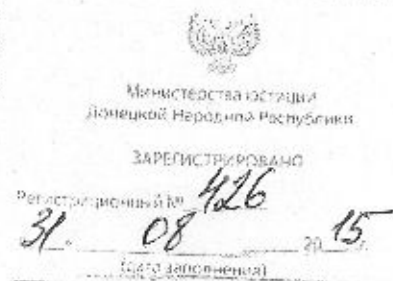 Министерства юстиции
Донецкой Народной Республики
ЗАРЕГИСТРИРОВАНО
Регистрационный № 426
31. 08 2015 г.
(дата заполнения)